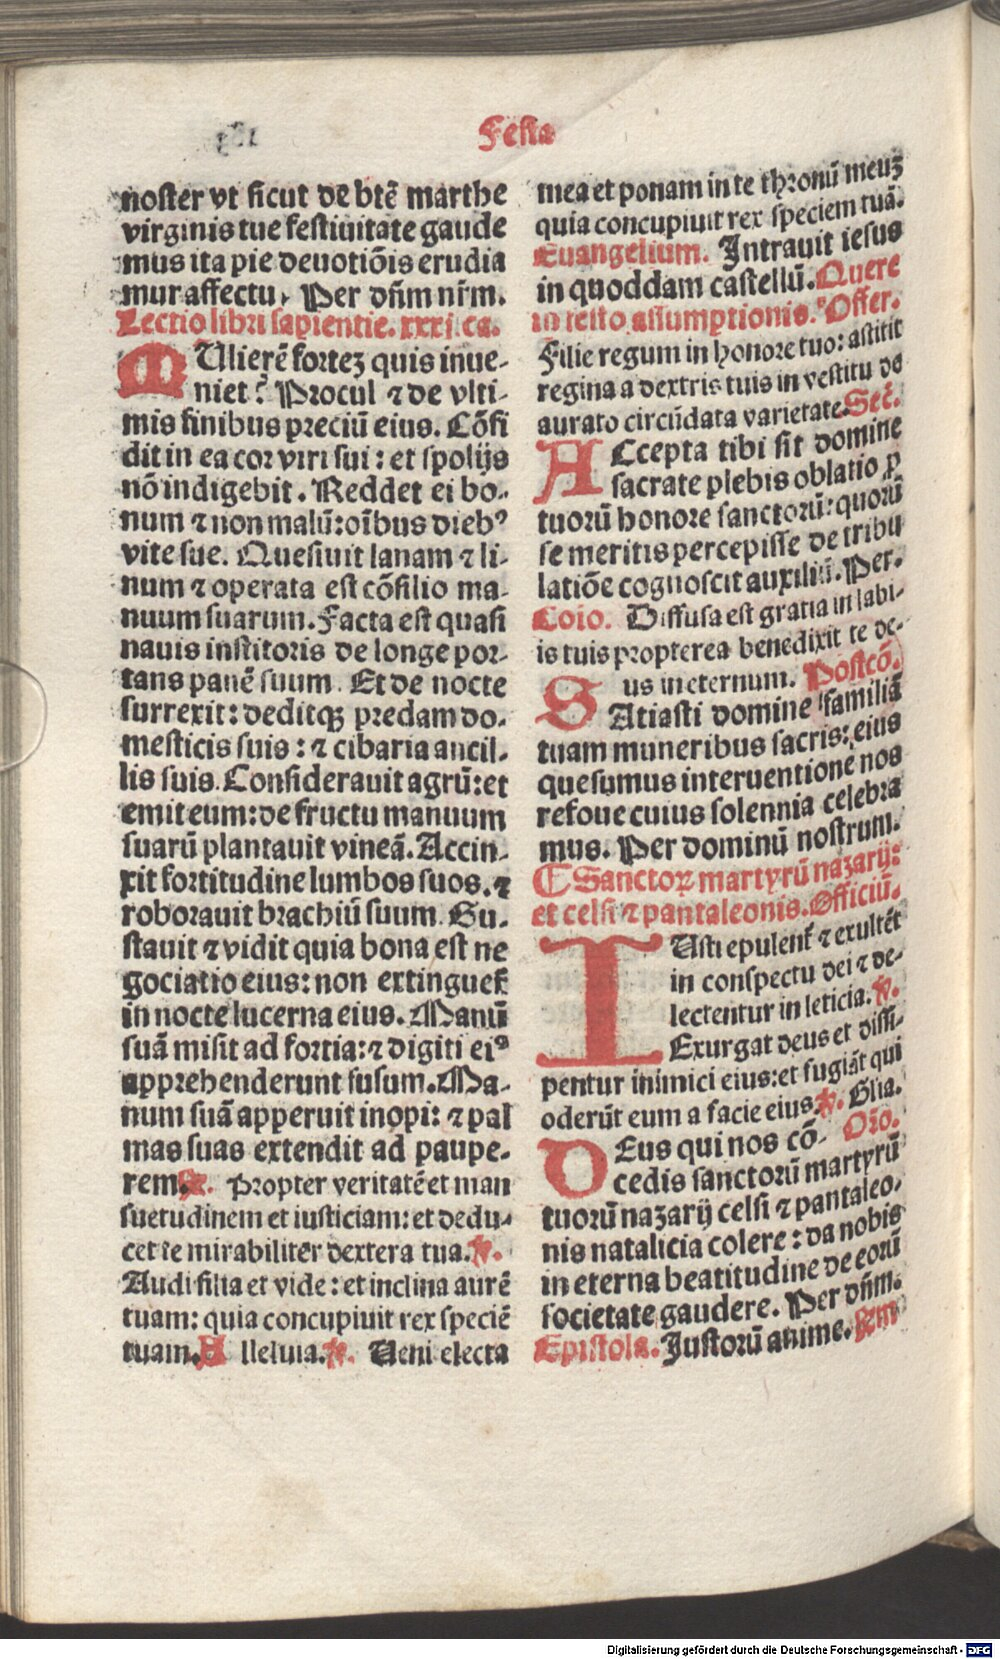 Festa
noster vt sicut de btē marthe
virginis tue festiuitate gaude
mus ita pie deuotiōis erudia
mur affectu. Per dn̄m nr̄m.
Lectio libri sapientie. xxxj. ca.
MUlierē fortez quis inue-
niet? Procul ⁊ de vlti-
mis finibus preciū eius. Cōfi
dit in ea cor viri sui: et spolijs
nō indigebit. Reddet ei bo-
num ⁊ non malū: oībus diebꝰ
vite sue. Quesiuit lanam ⁊ li-
num ⁊ operata est cōsilio ma-
nuum suarum. Facta est quasi
nauis institoris de longe por-
tans panē suum. Et de nocte
surrexit: deditqꝫ predam do-
mesticis suis: ⁊ cibaria ancil-
lis suis. Considerauit agrū: et
emit eum: de fructu manuum
suarū plantauit vineā. Accin-
xit fortitudine lumbos suos. ⁊
roborauit brachiū suum. Gu-
stauit ⁊ vidit quia bona est ne
gociatio eius: non extinguet᷑
in nocte lucerna eius. Manū
suā misit ad fortia: ⁊ digiti eiꝰ
apprehenderunt fusum. Ma-
num suā apperuit inopi: ⁊ pal
mas suas extendit ad paupe-
rem. Propter veritatē et man
suetudinem et iusticiam: et dedu-
cet te mirabiliter dextera tua. ℣.
Audi filia et vide: et inclina aurē
tuam: quia concupiuit rex speciē
tuam. Alleluia. ℣. Ueni electa
mea et ponam in te thronū meuꝫ
quia concupiuit rex speciem tuā.
Euangelium. Intrauit iesus
in quoddam castellū. Quere
in festo assumptionis. Offer.
Filie regum in honore tuo: astitit
regina a dextris tuis in vestitu de
aurato circūdata varietate. Sec̄.
ACcepta tibi sit domine
sacrate plebis oblatio ꝓ
tuorū honore sanctorū: quorū
se meritis percepisse de tribu
latiōe cognoscit auxiliū. Per.
Coio. Diffusa est gratia in labi-
is tuis propterea benedixit te de-
us in eternum. Postcō.
SAtiasti domine familiā
tuam muneribus sacris: eius
quesumus interuentione nos
refoue cuius solennia celebra
mus. Per dominū nostrum.
¶ Sanctoꝝ martyrū nazarij:
et celsi ⁊ pantaleonis. Officiū.
IUsti epulent᷑ ⁊ exultēt
in conspectu dei ⁊ de-
lectentur in leticia. ℣.
Exurgat deus et dissi-
pentur inimici eius: et fugiāt qui
oderūt eum a facie eius. ℣. Glia.
DEus qui nos cō- Orō.
cedis sanctorū martyrū
tuorū nazarij celsi ⁊ pantaleo-
nis natalicia colere: da nobis
in eterna beatitudine de eorū
societate gaudere. Per dn̄m.
Epistola. Justorū anime.
Digitalisierung gefördert durch die Deutsche Forschungsgemeinschaft - DFG